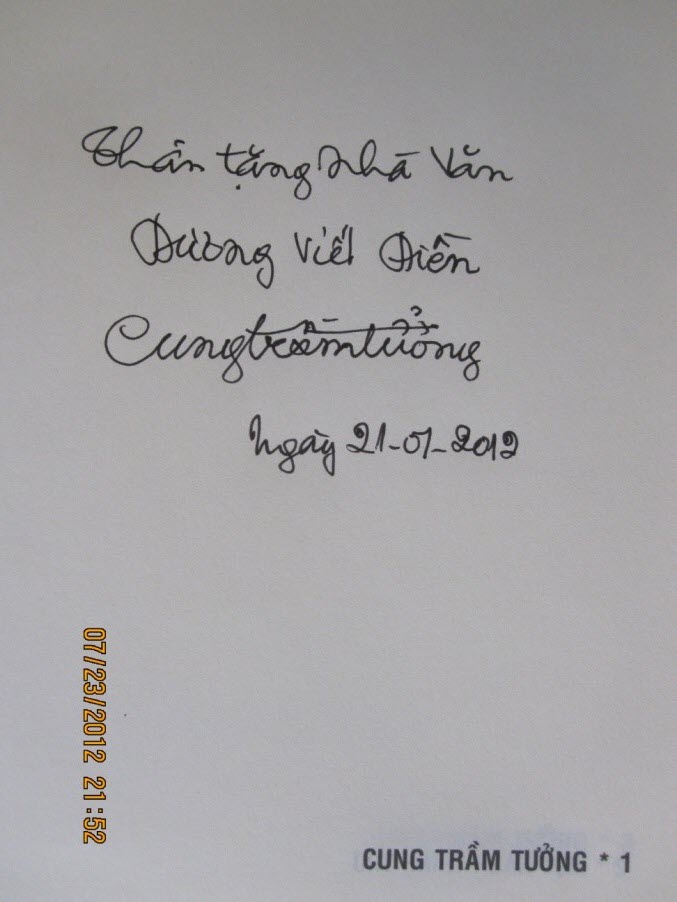 Thân tặng Nhà Văn
Dương Viết Điền
Cung trầm tưởng
Ngày 21-07-2012
07/23/2012 21:52
CUNG TRẦM TƯỞNG * 1